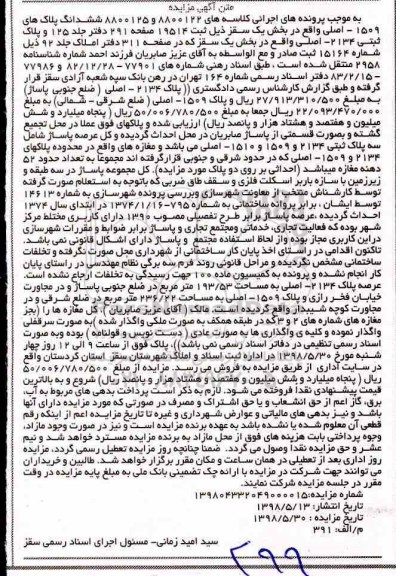 متن آگهی مزایده
به موجب پرونده های اجرائی کلاسه های ۸۸۰۰۱۲۲ و ۸۸۰۰۱۲۵ ششدانگ پلاک های
۱۵۰۹ - اصلی واقع در بخش یک سقز ذیل ثبت ۱۹۵۱۴ صفحه ۲۹۱ دفتر جلد ۱۲۵ و پلاک
ثبتی ۲۱۳۴- اصلی واقع در بخش یک سقز که در صفحه ۳۱۱ دفتر املاک جلد ۹۲ ذیل
شماره ۱۵۱۶۴ ثبت صادر و مع الواسطه به آقای عزیز صابریان فرزند احمد شماره شناسنامه
۲۹۵۸ منتقل شده است ، طبق اسناد رهنی شماره های ۷۷۹۰۱ - ۸۲/۱۲/۲۸ و ۷۷۹۸۶
-۸۳/۲/۱۵ دفتر اسناد رسمی شماره ۱۶۴ تهران در رهن بانک سپه شعبه آزادی سقز قرار
گرفته و طبق گزارش کارشناس رسمی دادگستری (( پلاک ۲۱۳۴ - اصلی ( ضلع جنوبی پاساژ)
به مبلغ ۲۷/۹۱۳/۳۱۰/۵۰۰ ریال و پلاک ۱۵۰۹- اصلی ( ضلع شرقی - شمالی) به مبلغ
۲۲/۰۹۳/۴۷۰/۰۰۰ ریال جمعا به مبلغ ۵۰/۰۰۶/۷۸۰/۵۰۰ ریال ( پنجاه میلیارد و شش
میلیون و هفتصد و هشتاد هزار و پانصد ریال) ارزیابی شده و پلاکهای فوق عملا در محل تجمیع
گشته و بصورت قسمتی از پاساژ صابریان در محل احداث گردیده و کل عرصه پاساژ شامل
سه پلاک ثبتی ۲۱۳۴ و ۱۵۰۹ و ۱۵۱۰- اصلی می باشد و مغازه های واقع در محدوده پلاکهای
۲۱۳۴ و ۱۵۰۹- اصلی که در حدود شرقی و جنوبی قرارگرفته اند مجموعاً به تعداد حدود ۵۲
دهنه مغازه میباشد ( احداثی بر روی دو پلاک مورد مزایده). کل مجموعه پاساژ در سه طبقه و
زیرزمین با سازه باربر اسکلت فلزی و سقف طاق ضربی که باتوجه به استعلام صورت گرفته
توسط کارشناس منتخب از معاونت شهرسازی وبررسی پرونده شهرسازی به شماره ۱۴۶۱۳
توسط ایشان ، برابر پروانه ساختمانی به شماره ۷۹۵-۱۳۷۴/۱/۱۶ در ابتدای سال ۱۳۷۴
احداث گردیده .عرصه پاساژ برابر طرح تفصیلی مصوب ۱۳۹۰ دارای کاربری مختلط مرکز
شهر بوده که فعالیت تجاری، خدماتی ومجتمع تجاری و پاساژ برابر ضوابط و مقررات شهرسازی
در این کاربری مجاز بوده واز لحاظ استفاده مجتمع و پاساژ دارای اشکال قانونی نمی باشد.
تاکنون اقدامی در راستای اخذ پایان کار ساختمانی از شهرداری محل صورت نگرفته و تخلفات
ساختمانی مشخص نگردیده و مراحل قانونی روند فرم سه برگی نظام مهندسی در راستای پایان
کار انجام نشده و پرونده به کمیسیون ماده ۱۰۰ جهت رسیدگی به تخلفات ارجاع نشده است.
عرصه پلاک ۲۱۳۴- اصلی به مساحت ۱۹۳/۵۳ متر مربع در ضلع جنوبی پاساژ و در مجاورت
خیابان فخر رازی و پلاک ۱۵۰۹- اصلی به مساحت ۲۳۶/۲۲ متر مربع در ضلع شرقی و در
مجاورت کوچه شبیدار واقع گردیده است. مالک ( آقای عزیز صابریان ) کل مغازه ها را (بجز
مغازه های شماره های ۲ و ۳ که در طبقه همکف به صورت ملکی واگذار شده )به صورت سرقفلی
واگذار نموده و کلیه ی واگذاری ها به صورت عادی ( دست نویس و قولنامه ) بوده وبه صورت
اسناد رسمی تنظیمی در دفاتر اسناد رسمی نمی باشد))، پلاک فوق از ساعت ۹ الی ۱۲ روز چهار
شنبه مورخ ۱۳۹۸/۵/۳۰ در اداره ثبت اسناد و املاک شهرستان سقز استان کردستان واقع
در سایت اداری از طریق مزایده به فروش می رسد. مزایده از مبلغ ۵۰/۰۰۶/۷۸۰/۵۰۰
ریال ( پنجاه میلیارد و شش میلیون و هفتصد و هشتاد هزار و پانصد ریال) شروع و به بالاترین
قیمت پیشنهادی نقدا فروخته می شود. لازم به ذکر است پرداخت بدهی های مربوط به آب،
برق، گاز اعم از حق انشعاب و یا حق اشتراک و مصرف در صورتی که مورد مزایده دارای آنها
باشد و نیز بدهی های مالیاتی و عوارض شهرداری و غیره تا تاریخ مزایده اعم از اینکه رقم
قطعی آن معلوم شده یا نشده باشد به عهده برنده مزایده است و نیز در صورت وجود مازاد،
وجوه پرداختی بابت هزینه های فوق از محل مازاد به برنده مزایده مسترد خواهد شد و نیم
عشر و حق مزایده نقدا وصول می گردد. ضمنا چنانچه روز مزایده تعطیل رسمی گردد، مزایده
روز اداری بعد از تعطیلی در همان ساعت و مکان مقرر برگزار خواهد شد. طالبین و خریداران
می توانند جهت شرکت در مزایده با ارائه چک تضمینی بانک ملی به مبلغ پایه مزایده در وقت
مقرر در جلسه مزایده شرکت نمایند.
شماره مزایده:۱۳۹۸۰۴۳۳۲۰۴۹۰۰۰۰۱۵
تاریخ انتشار: ۱۳۹۸/۵/۱۳
تاریخ مزایده : ۱۳۹۸/۵/۳۰
م/الف: ۳۹۱
سید امید زمانی- مسئول اجرای اسناد رسمی سقز
۲۹۹